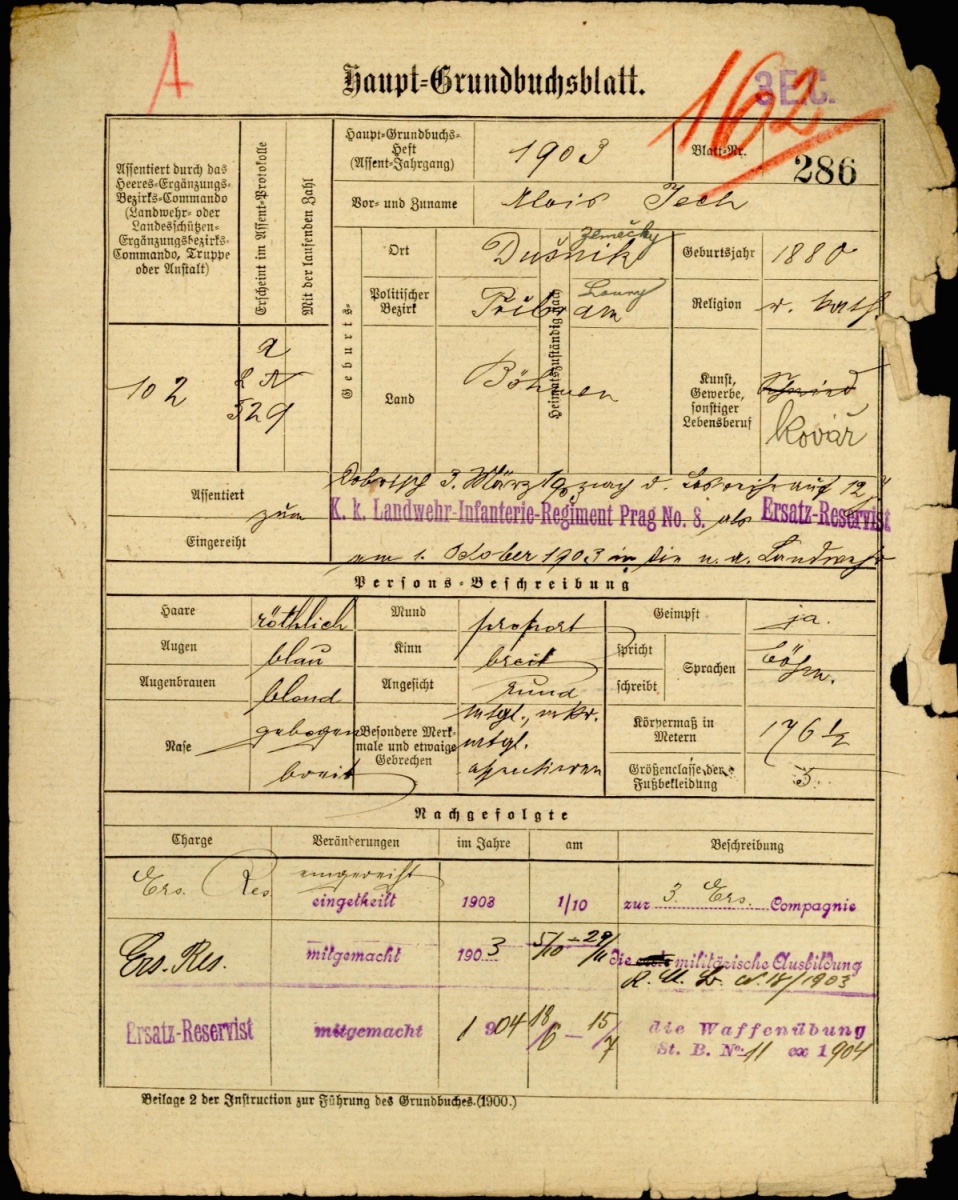 A
Haupt-Grundbuchsblatt.
3 E.C.
162
Assentiert durch das
Heeres-Ergänzungs-
Bezirks-Commando
(Landwehr- oder
Landesschützen-
Ergänzungsbezirks-
Commando, Truppe
oder Anstalt)
Erscheint im Assent-Protokolle
Mit der laufenden Zahl
102
529
Haupt-Grundbuchs-
Heft
(Assent-Jahrgang)
1903
Blatt-Nr.
286
Vor- und Zuname
Alois Zech
Geburts-
Ort
Dušnik
Heimatszuständig nach
Geburtsjahr
1880
Politischer
Bezirk
Přibram
Louny
Religion
r. kath.
Land
Böhmen
Kunst,
Gewerbe,
sonstiger
Lebensberuf
Schmied
kovář
Assentiert
Dobřisch 3. März 1903 nach d. Losreihe auf 12 J
zum K. k. Landwehr-Infanterie-Regiment Prag No. 8. als Ersatz-Reservist
Eingereiht
am 1. Oktober 1903 in die n. a. Landwehr
Persons-Beschreibung
Haare
röthlich
Mund
proport
Geimpft
ja.
Augen
blau
Kinn
breit
spricht
schreibt
Sprachen
böhm.
Augenbrauen
blond
Angesicht
rund
Nase
gebogen
breit
Besondere Merk-
male und etwaige
Gebrechen
mtgl.
mtgl.
Körpermaß in
Metern
176 1/2
Größenclasse der
Fußbekleidung
5.
Nachgefolgte
Charge
Veränderungen
im Jahre
am
Beschreibung
Ers. Res.
eingereiht
eingetheilt
1903
1/10
zur 3. Ers. Compagnie
Ers. Res.
mitgemacht
1903
5/10 - 29/11
die militärische Ausbildung
No 18/1903
Ersatz-Reservist
mitgemacht
1904
18/6 - 15/7
die Waffenübung
St. B. No 11 ex 1904
Beilage 2 der Instruction zur Führung des Grundbuches. (1900.)